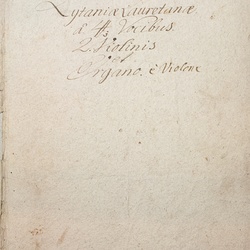 Lytaniæ Lauretanæ
à 4 Vocibus.
2. Violinis
et
Organo. è Violone